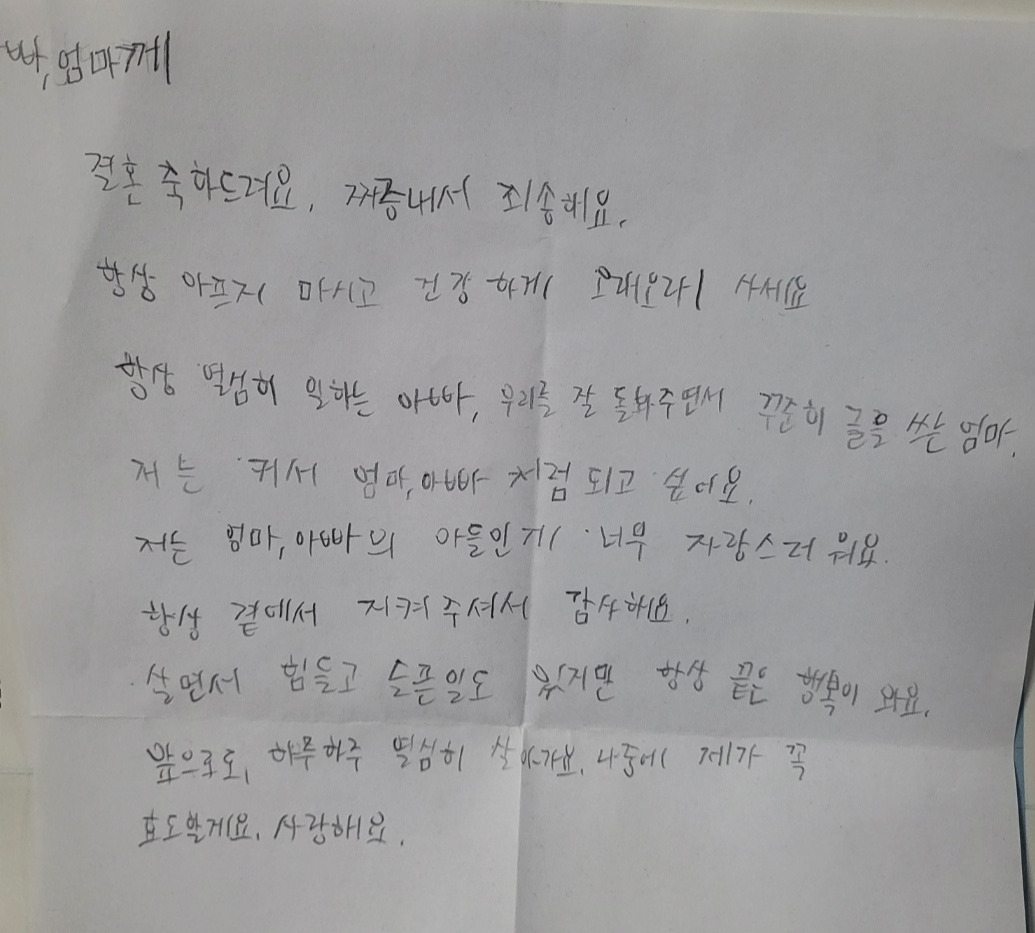 빠, 엄마께
결혼 축하드려요. 짜증내서 죄송해요.
항상 아프지 마시고 건강하게 오래오라 사세요
항상 열심히 일하는 아빠, 우리를 잘 돌봐주면서 꾸준히 글을 쓰는 엄마.
저는 커서 엄마, 아빠 처럼 되고 싶어요.
저는 엄마, 아빠의 아들인게 너무 자랑스러워요.
항상 곁에서 지켜주셔서 감사해요.
살면서 힘들고 슬픈일도 있지만 항상 끝은 행복이 와요.
앞으로도, 하루하주 열심히 살아가요. 나중에 제가 꼭
효도할게요. 사랑해요.